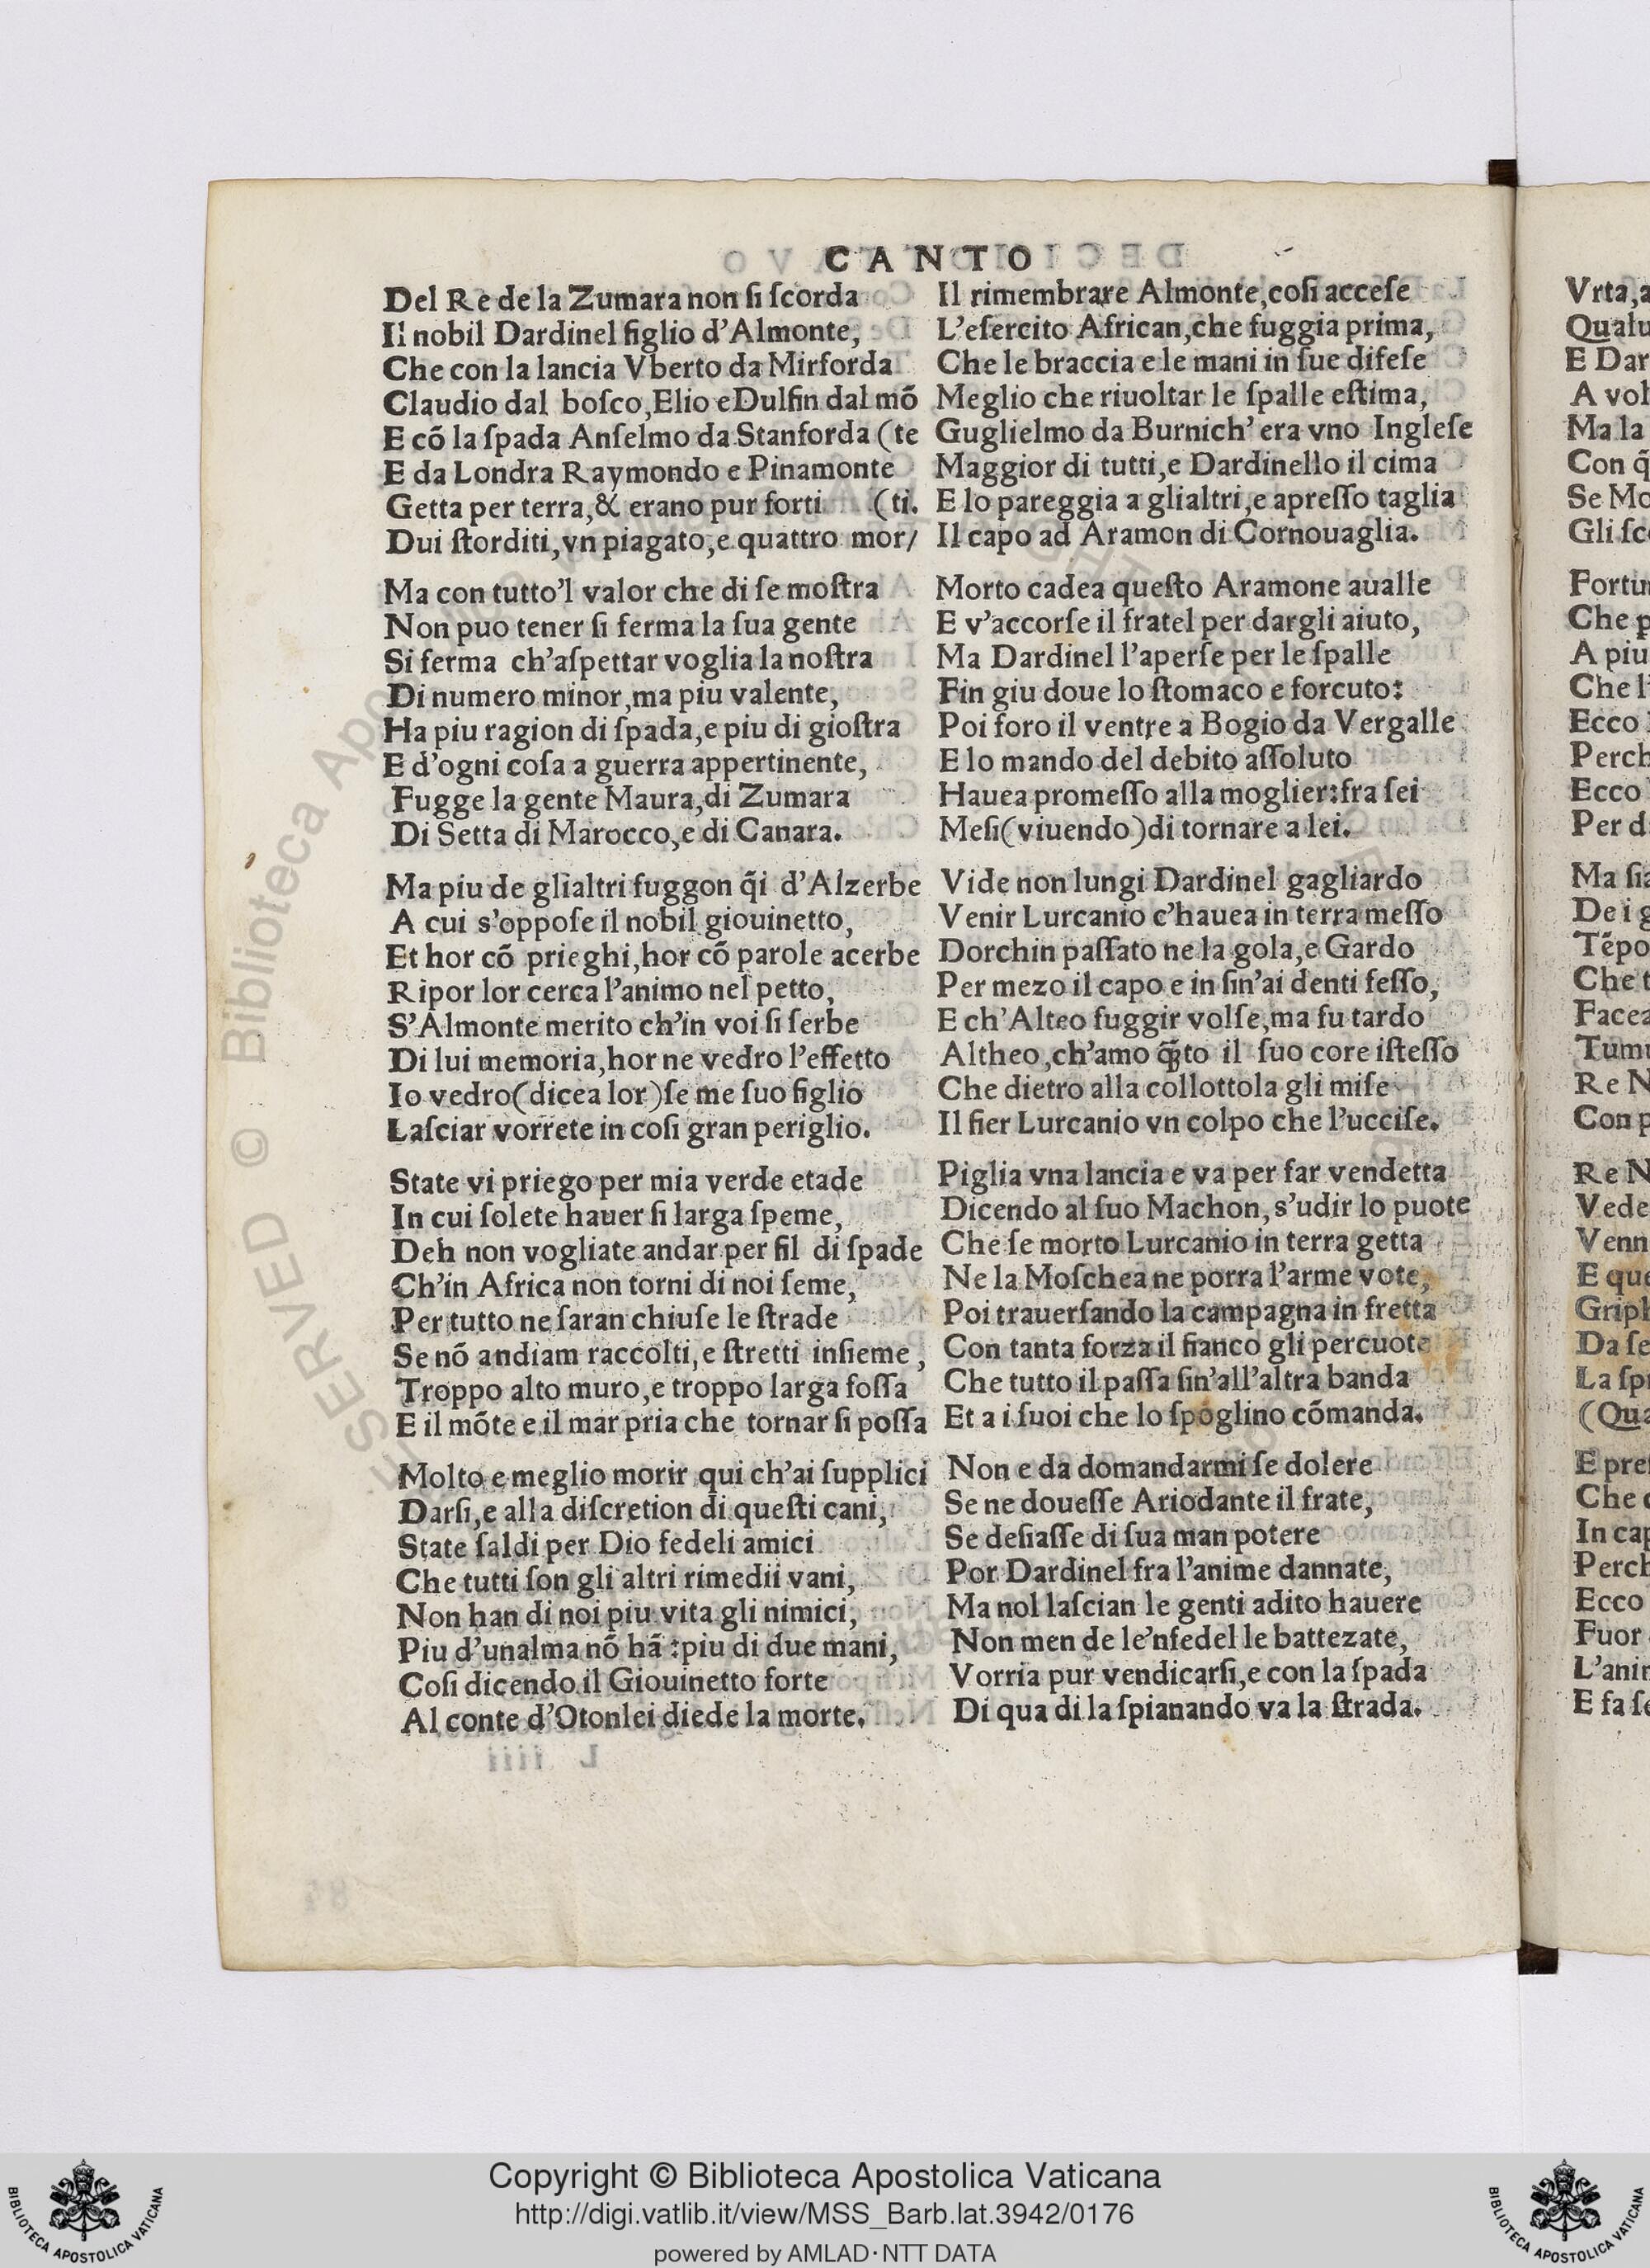 CANTO
Del Re de la Zumara non ſi ſcorda
Il nobil Dardinel figlio d'Almonte,
Che con la lancia Vberto da Mirforda
Claudio dal boſco,Elio e Dulfin dal mõ
E cõ la ſpada Anſelmo da Stanforda (te
E da Londra Raymondo e Pinamonte
Getta per terra,& erano pur forti (ti.
Dui ſtorditi,vn piagato,e quattro mor/
Ma con tutto'l valor che di ſe moſtra
Non puo tener ſi ferma la ſua gente
Si ferma ch'aſpettar voglia la noſtra
Di numero minor,ma piu valente,
Ha piu ragion di ſpada,e piu di gioſtra
E d'ogni coſa a guerra appertinente,
Fugge la gente Maura,di Zumara
Di Setta di Marocco,e di Canara.
Ma piu de glialtri fuggon q̃i d'Alzerbe
A cui s'oppoſe il nobil giouinetto,
Et hor cõ prieghi,hor cõ parole acerbe
Ripor lor cerca l'animo nel petto,
S'Almonte merito ch'in voi ſi ſerbe
Di lui memoria,hor ne vedro l'effetto
Io vedro(dicea lor)ſe me ſuo figlio
Laſciar vorrete in coſi gran periglio.
State vi priego per mia verde etade
In cui ſolete hauer ſi larga ſpeme,
Deh non vogliate andar per fil di ſpade
Ch'in Africa non torni di noi ſeme,
Per tutto ne ſaran chiuſe le ſtrade
Se nõ andiam raccolti,e ſtretti inſieme,
Troppo alto muro,e troppo larga foſſa
E il mõte e il mar pria che tornar ſi poſſa
Molto e meglio morir qui ch'ai ſupplici
Darſi,e alla diſcretion di queſti cani,
State ſaldi per Dio fedeli amici
Che tutti ſon gli altri rimedii vani,
Non han di noi piu vita gli nimici,
Piu d'unalma nõ hã :piu di due mani,
Coſi dicendo il Giouinetto forte
Al conte d'Otonlei diede la morte.
Il rimembrare Almonte,coſi acceſe
L'eſercito African,che fuggia prima,
Che le braccia e le mani in ſue difeſe
Meglio che riuoltar le ſpalle eſtima,
Guglielmo da Burnich' era vno Ingleſe
Maggior di tutti,e Dardinello il cima
E lo pareggia a glialtri,e apreſſo taglia
Il capo ad Aramon di Cornouaglia.
Morto cadea queſto Aramone aualle
E v'accorſe il fratel per dargli aiuto,
Ma Dardinel l'aperſe per le ſpalle
Fin giu doue lo ſtomaco e forcuto:
Poi foro il ventre a Bogio da Vergalle
E lo mando del debito aſſoluto
Hauea promeſſo alla moglier:fra ſei
Meſi(viuendo)di tornare a lei.
Vide non lungi Dardinel gagliardo
Venir Lurcanio c'hauea in terra meſſo
Dorchin paſſato ne la gola,e Gardo
Per mezo il capo e in ſin'ai denti feſſo,
E ch'Alteo fuggir volſe,ma fu tardo
Altheo,ch'amo q̃to il ſuo core iſteſſo
Che dietro alla collottola gli miſe
Il fier Lurcanio vn colpo che l'ucciſe.
Piglia vna lancia e va per far vendetta
Dicendo al ſuo Machon, s'udir lo puote
Che ſe morto Lurcanio in terra getta
Ne la Moſchea ne porra l'arme vote,
Poi trauerſando la campagna in fretta
Con tanta forza il fianco gli percuote
Che tutto il paſſa ſin'all'altra banda
Et a i ſuoi che lo ſpoglino cõmanda.
Non e da domandarmi ſe dolere
Se ne doueſſe Ariodante il frate,
Se deſiaſſe di ſua man potere
Por Dardinel fra l'anime dannate,
Ma nol laſcian le genti adito hauere
Non men de le'nfedel le battezate,
Vorria pur vendicarſi,e con la ſpada
Di qua di la ſpianando va la ſtrada.
Vrta,a
Qualu
E Dar
A vol
Ma la
Con q̃
Se Mo
Gli ſc
Fortu
Che p
A piu
Che l'
Ecco
Perch
Ecco
Per d
Ma ſia
De i g
Tẽpo
Che t
Facea
Tumu
Re N
Con p
Re N
Vede
Venn
E que
Griph
Da ſe
La ſpa
(Qua
E pre
Che
In cap
Perch
Ecco
Fuor
L'anim
E fa ſe
© Biblioteca Apo
SERVED
Copyright © Biblioteca Apostolica Vaticana
http://digi.vatlib.it/view/MSS_Barb.lat.3942/0176
powered by AMLAD·NTT DATA
BIBLIOTECA APOSTOLICA VATICANA
BIBLIOTECA APOSTOLICA VATICANA